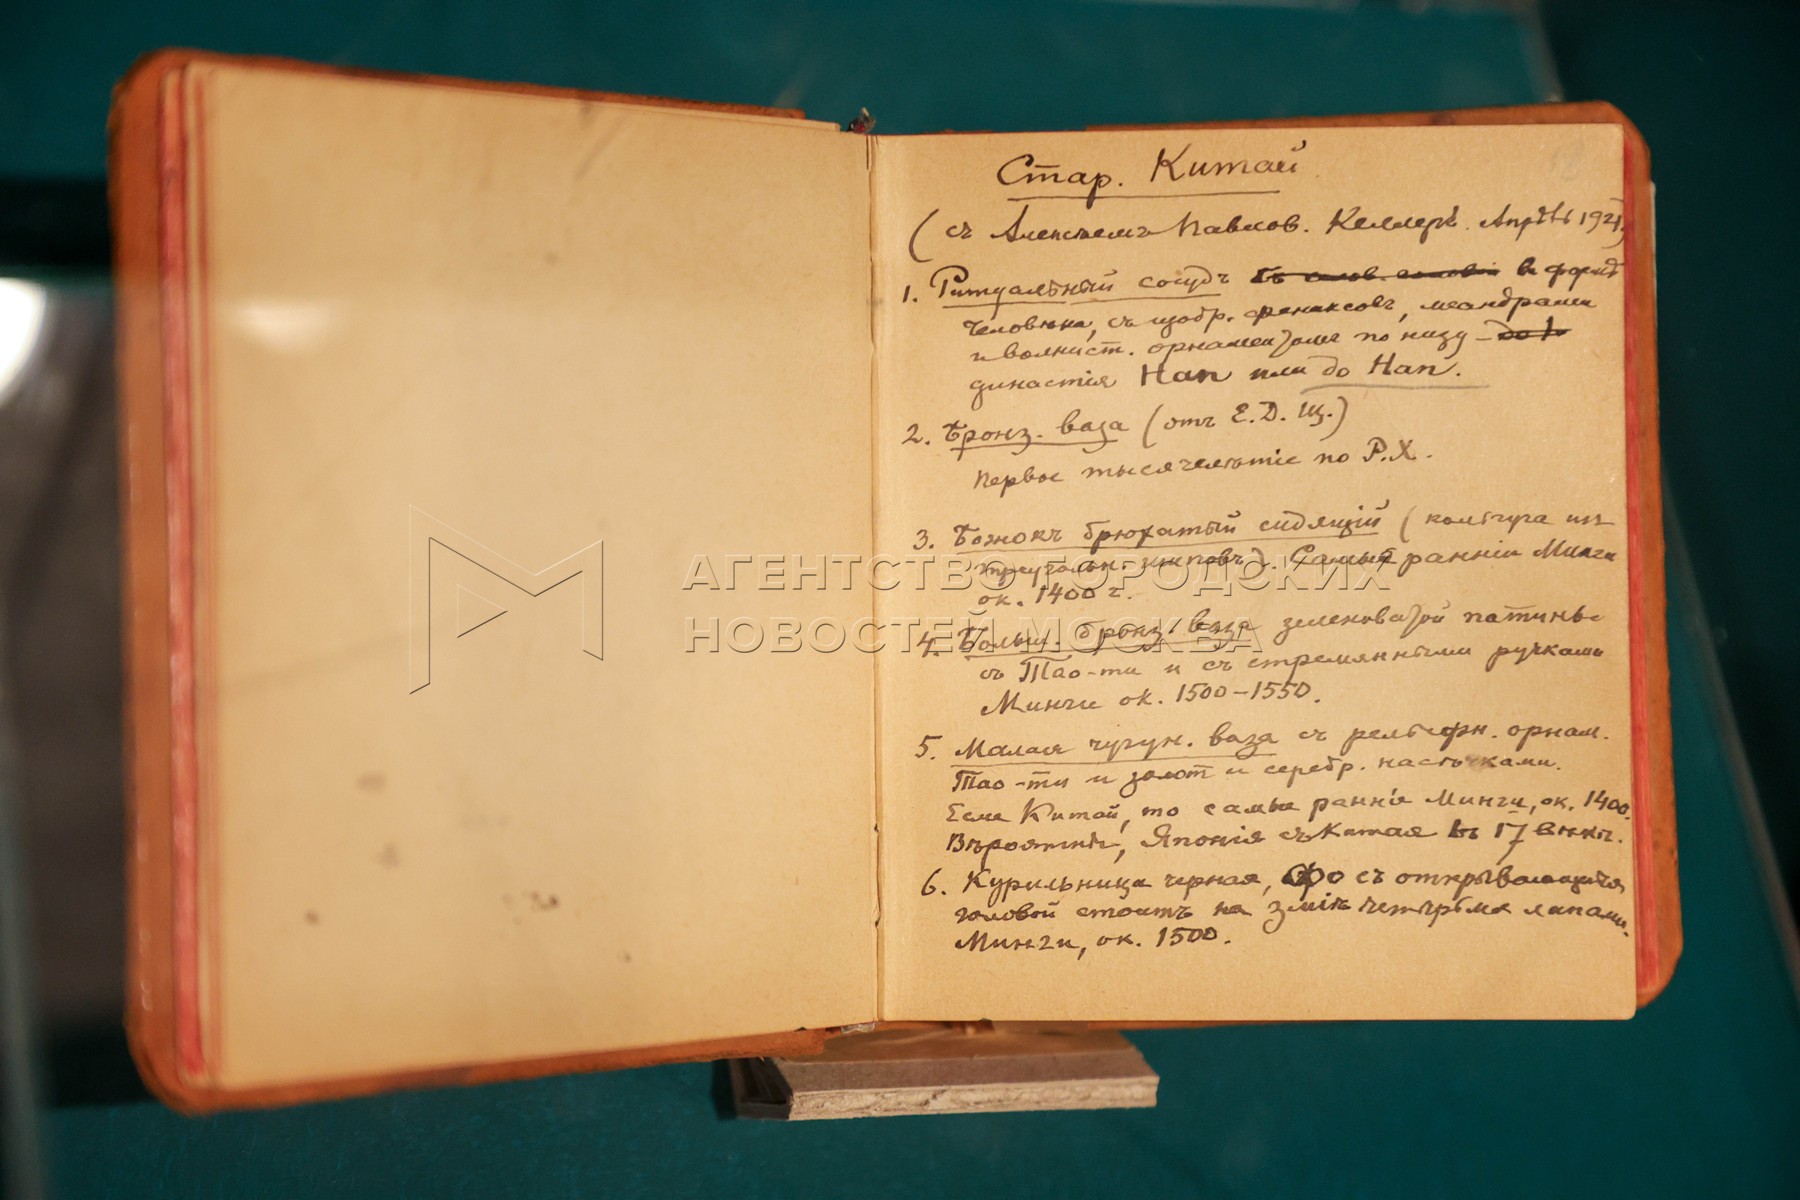 Стар. Китай
(съ Алексѣемъ Павлов. Келлеръ. Апрѣль 1921)
1. Ритуальный сосудъ въ формѣ
человѣка, съ изобр. фениксовъ, меандрами
и волнист. орнаментами по низу – до
династія Han или до Han.
2. Бронз. ваза (отъ Е.Д. Щ.)
Первое тысячелѣтіе по Р.Х.
3. Божокъ брюхатый сидящій (кольчуга изъ
треугольн. ). Самый ранній Минги
ок. 1400 г.
АГЕНТСТВО ГОРОДСКИХ
НОВОСТЕЙ МОСКВА
4. Больш. бронз. ваза зеленоватой патины
съ Тао-ти и съ стремянными ручками
Минги ок. 1500–1550.
5. Малая чугун. ваза съ рельефн. орнам.
Тао-ти и золот и серебр. насѣчками.
Если Китай, то самые ранніе Минги, ок. 1400.
Вѣроятнѣе, Японія съ Китая въ 17 вѣкѣ.
6. Курильница черная, Фо съ открывающейся
головой стоитъ на змѣѣ четырьмя лапами.
Минги, ок. 1500.